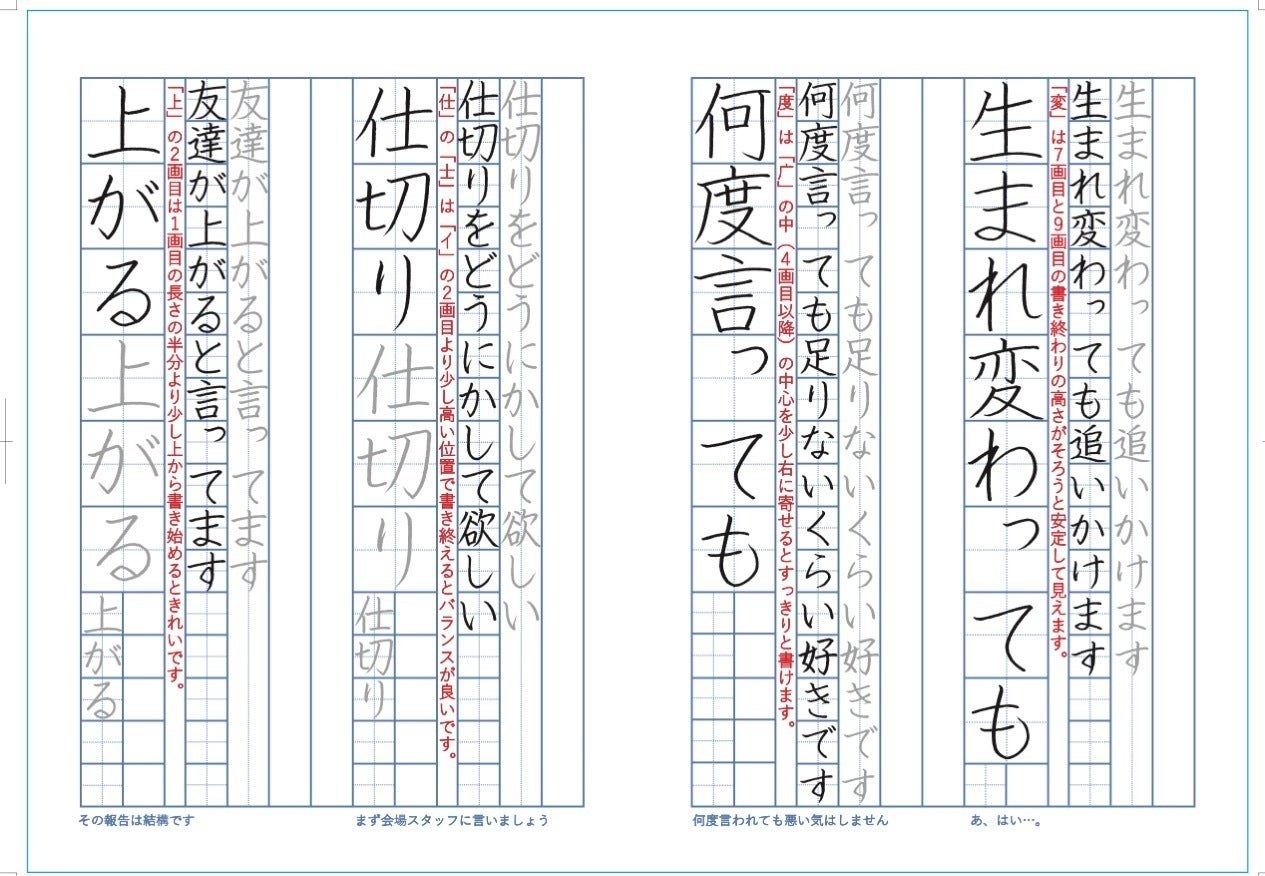 生まれ変わっても追いかけます
生まれ変わっても追いかけます
「変」は7画目と9画目の書き終わりの高さがそろうと安定して見えます。
生まれ変わっても
あ、はい…。
何度言っても足りないくらい好きです
何度言っても足りないくらい好きです
「度」は「广」の中（4画目以降）の中心を少し右に寄せるとすっきりと書けます。
何度言っても
何度言われても悪い気はしません
仕切りをどうにかして欲しい
仕切りをどうにかして欲しい
「仕」の「士」は「イ」の2画目より少し高い位置で書き終えるとバランスが良いです。
仕切り仕切り
仕切り
まず会場スタッフに言いましょう
友達が上がると言ってます
友達が上がると言ってます
「上」の2画目は1画目の長さの半分より少し上から書き始めるときれいです。
上がる上がる
上がる
その報告は結構です